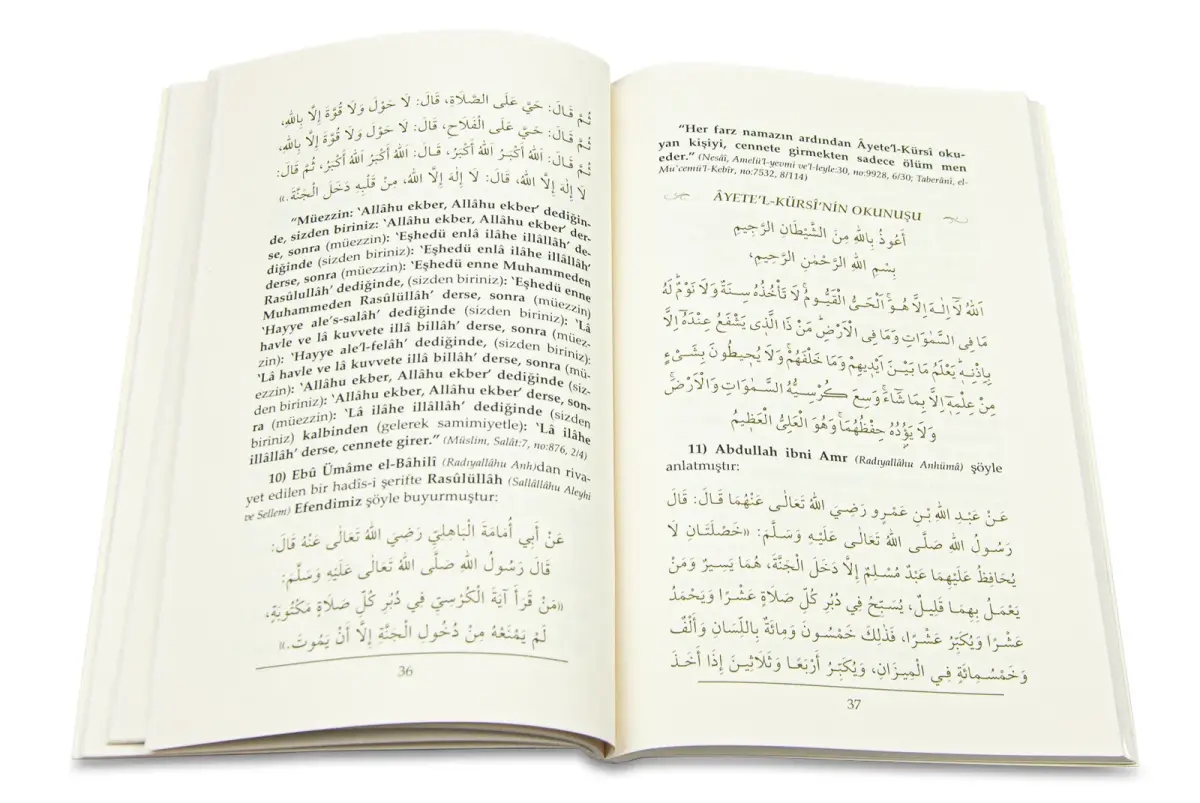 ثُمَّ قَالَ: حَيَّ عَلَى الصَّلَاةِ، قَالَ: لَا حَوْلَ وَلَا قُوَّةَ إِلَّا بِاللهِ،
ثُمَّ قَالَ: حَيَّ عَلَى الْفَلَاحِ، قَالَ: لَا حَوْلَ وَلَا قُوَّةَ إِلَّا بِاللهِ،
ثُمَّ قَالَ: اَللهُ أَكْبَرُ اَللهُ أَكْبَرُ، قَالَ: اَللهُ أَكْبَرُ اَللهُ أَكْبَرُ، ثُمَّ قَالَ:
لَا إِلٰهَ إِلَّا اللهُ، قَالَ: لَا إِلٰهَ إِلَّا اللهُ، مِنْ قَلْبِهِ دَخَلَ الْجَنَّةَ.»
“Müezzin: ‘Allâhu ekber, Allâhu ekber’ dediğin-
de, sizden biriniz: ‘Allâhu ekber, Allâhu ekber’ der-
se, sonra (müezzin): ‘Eşhedü enlâ ilâhe illâllâh’ de-
diğinde (sizden biriniz): ‘Eşhedü enlâ ilâhe illâllâh’
derse, sonra (müezzin): ‘Eşhedü enne Muhammeden
Rasûlullâh’ dediğinde, (sizden biriniz): ‘Eşhedü enne
Muhammeden Rasûlüllâh’ derse, sonra (müezzin)
‘Hayye ale’s-salâh’ dediğinde (sizden biriniz): ‘Lâ
havle ve lâ kuvvete illâ billâh’ derse, sonra (müez-
zin): ‘Hayye ale’l-felâh’ dediğinde, (sizden biriniz):
‘Lâ havle ve lâ kuvvete illâ billâh’ derse, sonra (mü-
ezzin): ‘Allâhu ekber, Allâhu ekber’ dediğinde (siz-
den biriniz): ‘Allâhu ekber, Allâhu ekber’ derse, son-
ra (müezzin): ‘Lâ ilâhe illâllâh’ dediğinde (sizden
biriniz) kalbinden (gelerek samimiyetle): ‘Lâ ilâhe
illâllâh’ derse, cennete girer.” (Müslim, Salât:7, no:876, 2/4)
10) Ebû Ümâme el-Bâhilî (Radıyallâhu Anh)dan riva-
yet edilen bir hadîs-i şerifte Rasûlüllâh (Sallâllâhu Aleyhi
ve Sellem) Efendimiz şöyle buyurmuştur:
عَنْ أَبِي أُمَامَةَ الْبَاهِلِيِّ رَضِيَ اللهُ تَعَالَى عَنْهُ قَالَ:
قَالَ رَسُولُ اللهِ صَلَّى اللهُ تَعَالَى عَلَيْهِ وَسَلَّمَ:
«مَنْ قَرَأَ آيَةَ الْكُرْسِيِّ فِي دُبُرِ كُلِّ صَلَاةٍ مَكْتُوبَةٍ،
لَمْ يَمْنَعْهُ مِنْ دُخُولِ الْجَنَّةِ إِلَّا أَنْ يَمُوتَ.»
36
“Her farz namazın ardından Âyete’l-Kürsî oku-
yan kişiyi, cennete girmekten sadece ölüm men
eder.” (Nesâî, Amelü’l-yevmi ve’l-leyle:30, no:9928, 6/30; Taberânî, el-
Mu’cemü’l-Kebîr, no:7532, 8/114)
ÂYETE’L-KÜRSÎ’NİN OKUNUŞU
أَعُوذُ بِاللهِ مِنَ الشَّيْطَانِ الرَّجِيمِ
بِسْمِ اللهِ الرَّحْمٰنِ الرَّحِيمِ،
اَللهُ لَآ اِلٰهَ اِلَّا هُوَۚ اَلْحَيُّ الْقَيُّومُۚ لَا تَأْخُذُهُ سِنَةٌ وَلَا نَوْمٌۜ لَهُ
مَا فِى السَّمٰوَاتِ وَمَا فِى الْاَرْضِۜ مَنْ ذَا الَّذٖى يَشْفَعُ عِنْدَهُٓ اِلَّا
بِاِذْنِهٖۜ يَعْلَمُ مَا بَيْنَ اَيْدٖيهِمْ وَمَا خَلْفَهُمْۚ وَلَا يُحٖيطُونَ بِشَىْءٍ
مِنْ عِلْمِهٖٓ اِلَّا بِمَا شَآءَۚ وَسِعَ كُرْسِيُّهُ السَّمٰوَاتِ وَالْاَرْضَۚ
وَلَا يَؤُ۫دُهُ حِفْظُهُمَاۚ وَهُوَ الْعَلِىُّ الْعَظٖيمُ
11) Abdullah ibni Amr (Radıyallâhu Anhümâ) şöyle
anlatmıştır:
عَنْ عَبْدِ اللهِ بْنِ عَمْرٍو رَضِيَ اللهُ تَعَالَى عَنْهُمَا قَالَ: قَالَ
رَسُولُ اللهِ صَلَّى اللهُ تَعَالَى عَلَيْهِ وَسَلَّمَ: «خَصْلَتَانِ لَا
يُحَافِظُ عَلَيْهِمَا عَبْدٌ مُسْلِمٌ إِلَّا دَخَلَ الْجَنَّةَ، هُمَا يَسِيرٌ وَمَنْ
يَعْمَلُ بِهِمَا قَلِيلٌ، يُسَبِّحُ فِي دُبُرِ كُلِّ صَلَاةٍ عَشْرًا وَيَحْمَدُ
عَشْرًا وَيُكَبِّرُ عَشْرًا، فَذٰلِكَ خَمْسُونَ وَمِائَةٌ بِاللِّسَانِ وَأَلْفٌ
وَخَمْسُمِائَةٍ فِي الْمِيزَانِ، وَيُكَبِّرُ أَرْبَعًا وَثَلَاثِينَ إِذَا أَخَذَ
37